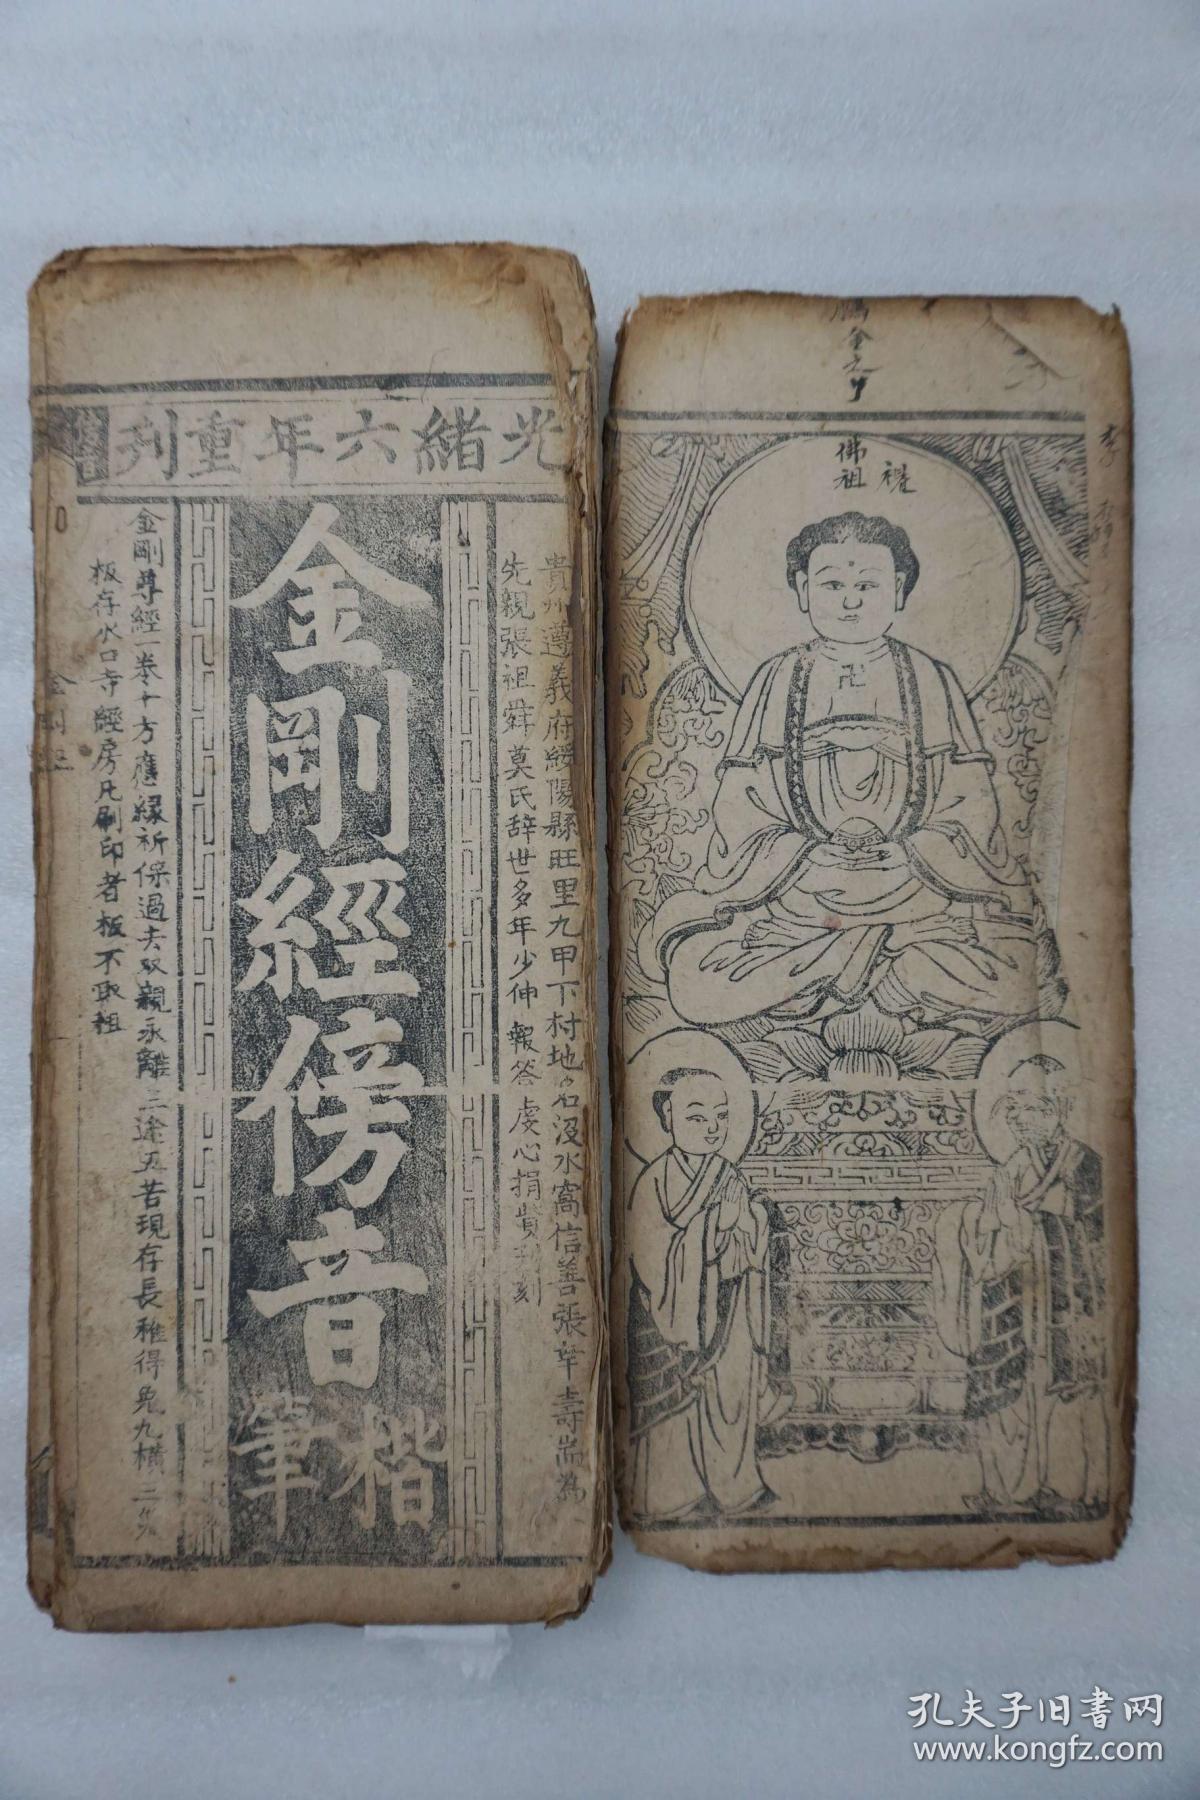 光緒六年重刊
貴州遵義府綏陽縣旺里九甲下村地名沒水窩信善張幸壽耑為
先親張祖舜莫氏辞世多年少伸報答虔心捐貲刊刻
金剛經傍音
楷筆
金剛尊經一卷十方應緣祈保過去双親永離三途五苦現存長稚得免九橫三災
板存水口寺經房凡刷印者板不取租
佛祖
孔夫子旧书网
www.kongfz.com